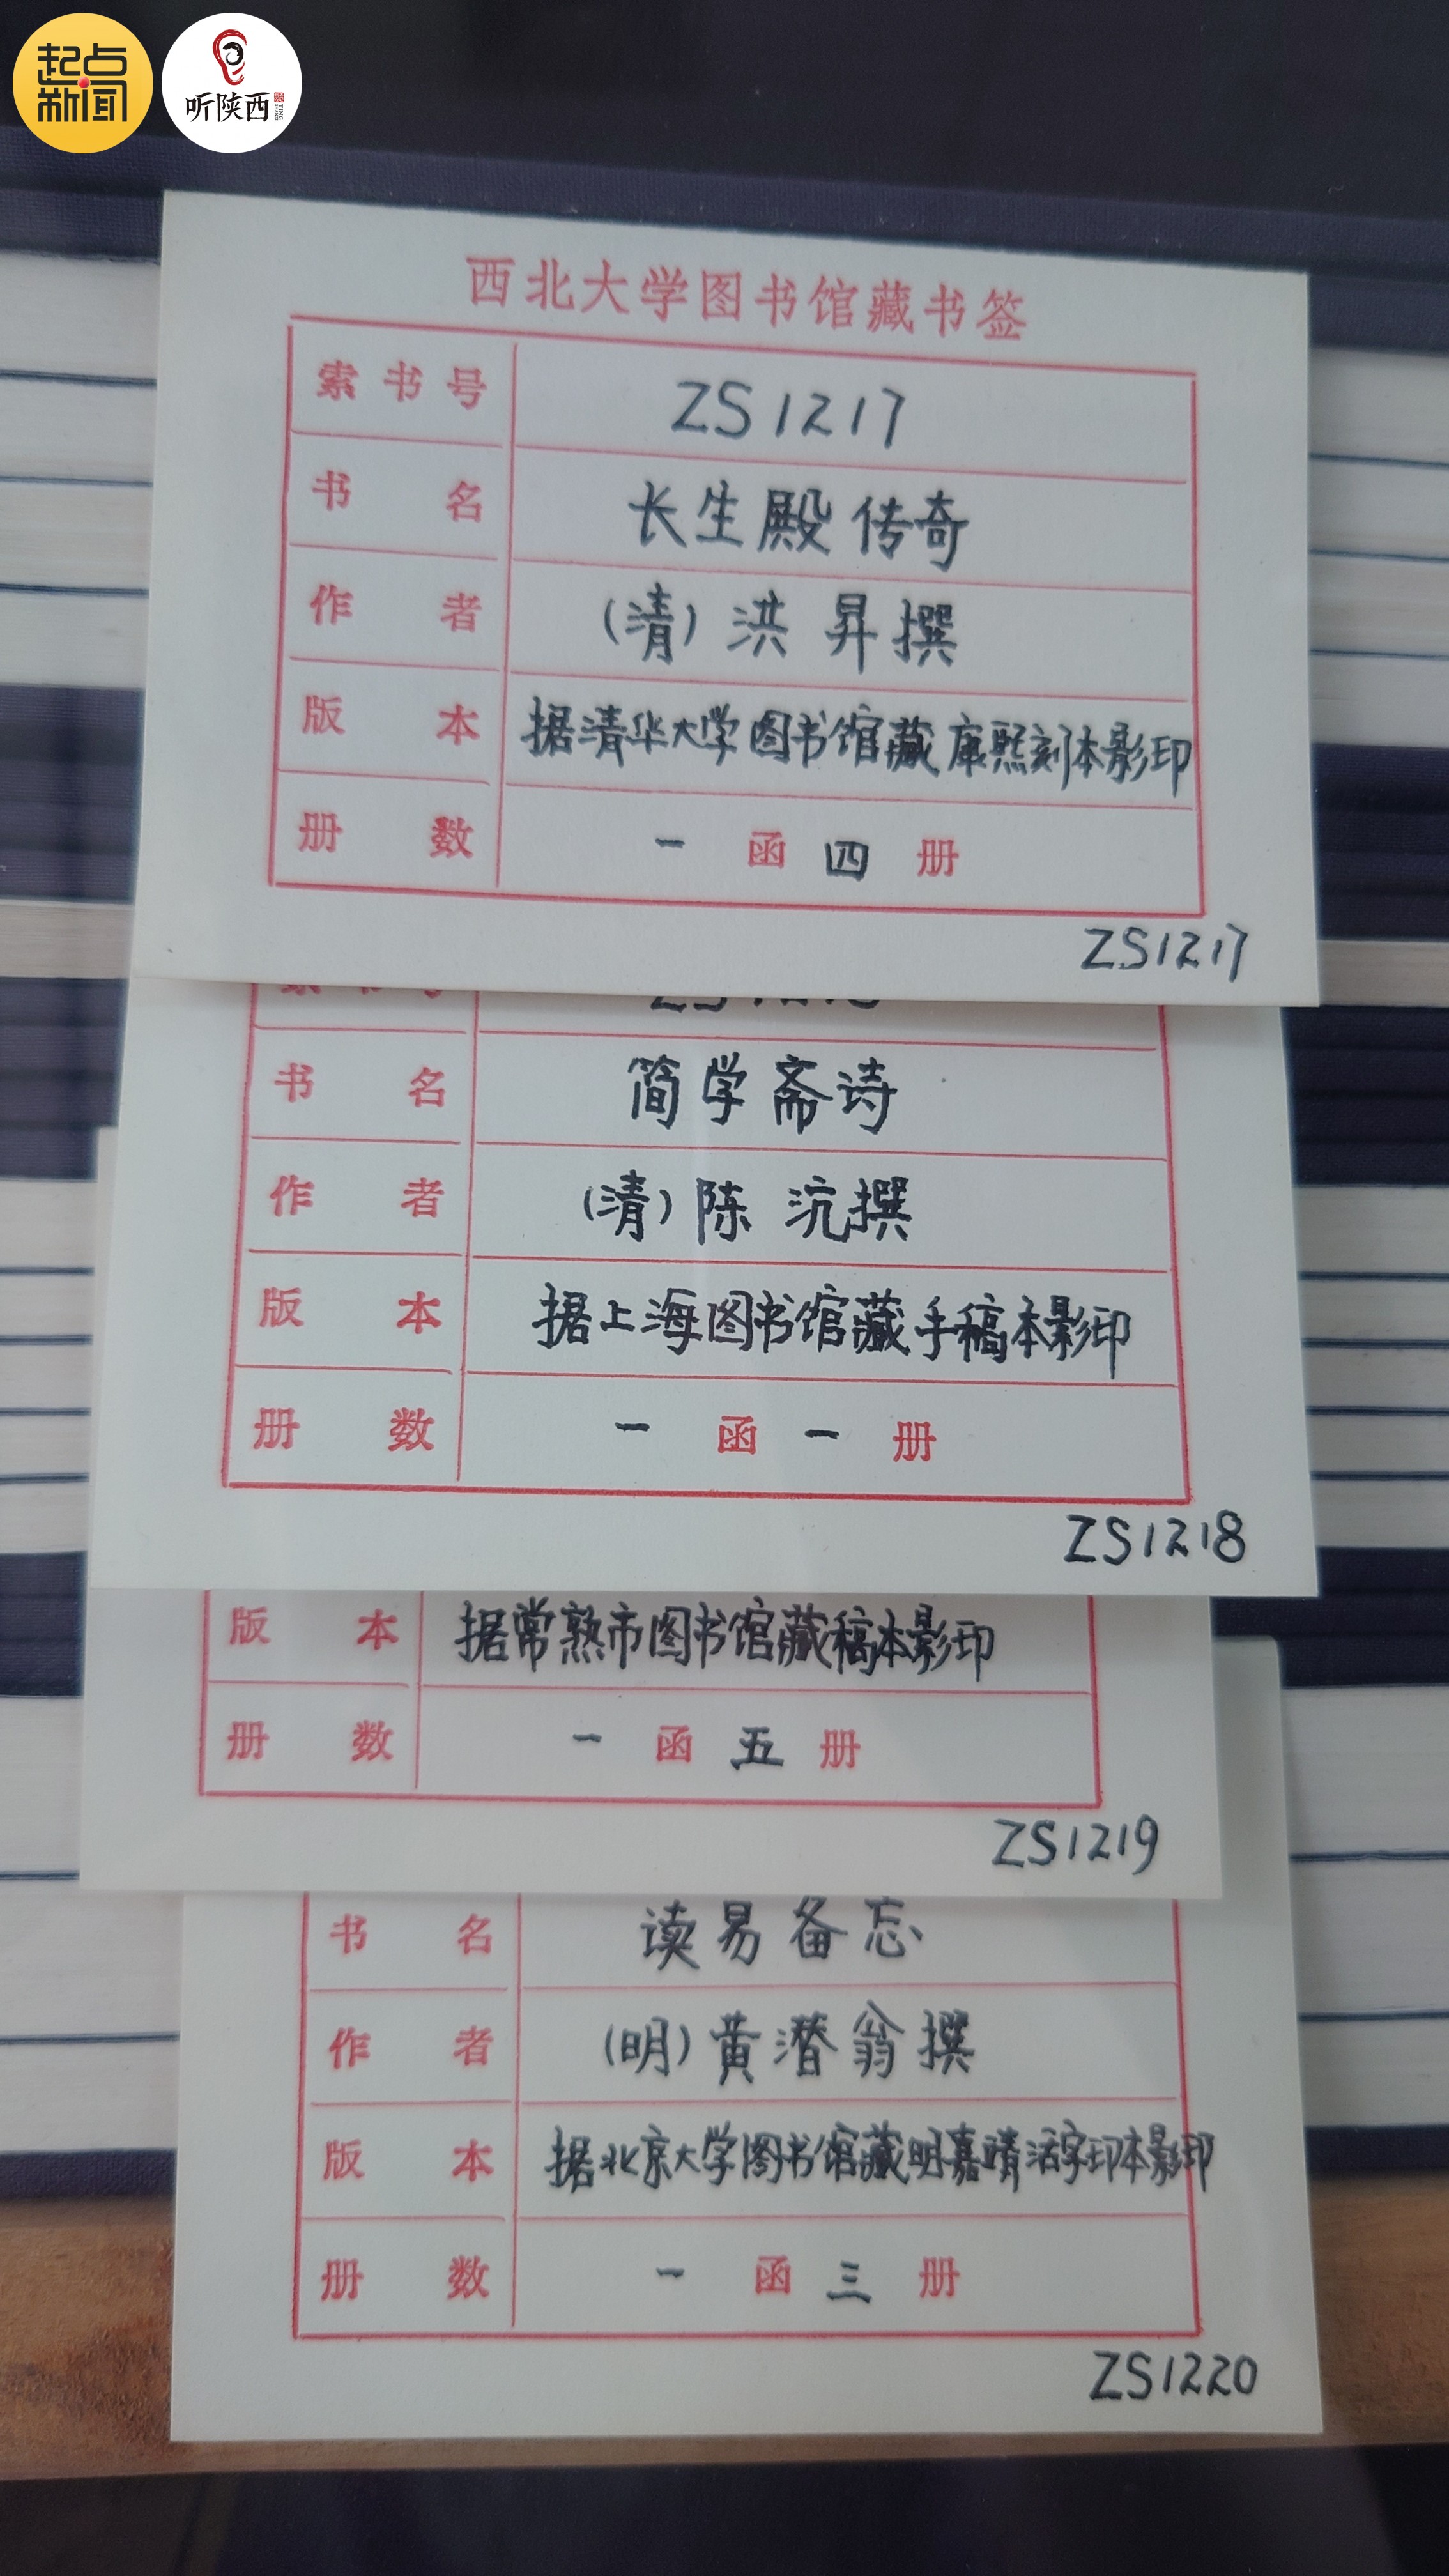 起点
新闻
听陕西
西北大学图书馆藏书签
索书号 ZS1217
书名 长生殿传奇
作者 (清)洪昇撰
版本 据清华大学图书馆藏康熙刻本影印
册数 一函四册
ZS1217
书名 简学斋诗
作者 (清)陈沆撰
版本 据上海图书馆藏手稿本影印
册数 一函一册
ZS1218
版本 据常熟市图书馆藏稿本影印
册数 一函五册
ZS1219
书名 读易备忘
作者 (明)黄潜翁撰
版本 据北京大学图书馆藏明嘉靖活字印本影印
册数 一函三册
ZS1220